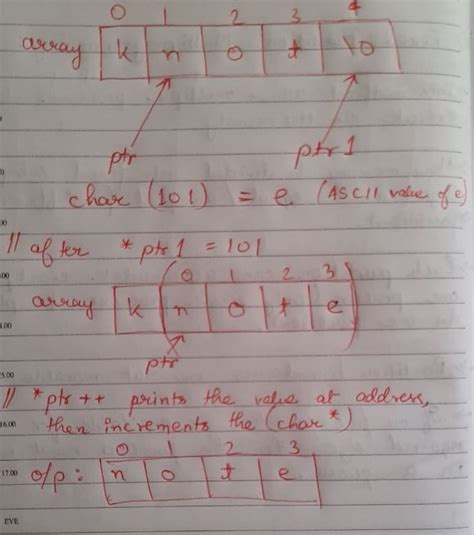 0 1 2 3 4
array k n o t \0
ptr ptr1
char (101) = e (ASCII value of e)
// after *ptr1 = 101
0 1 2 3
array k n o t e
ptr
// *ptr++ prints the value at address,
then increments the (char*)
0 1 2 3
o/p: n o t e
15.00
16.00
17.00
EVE